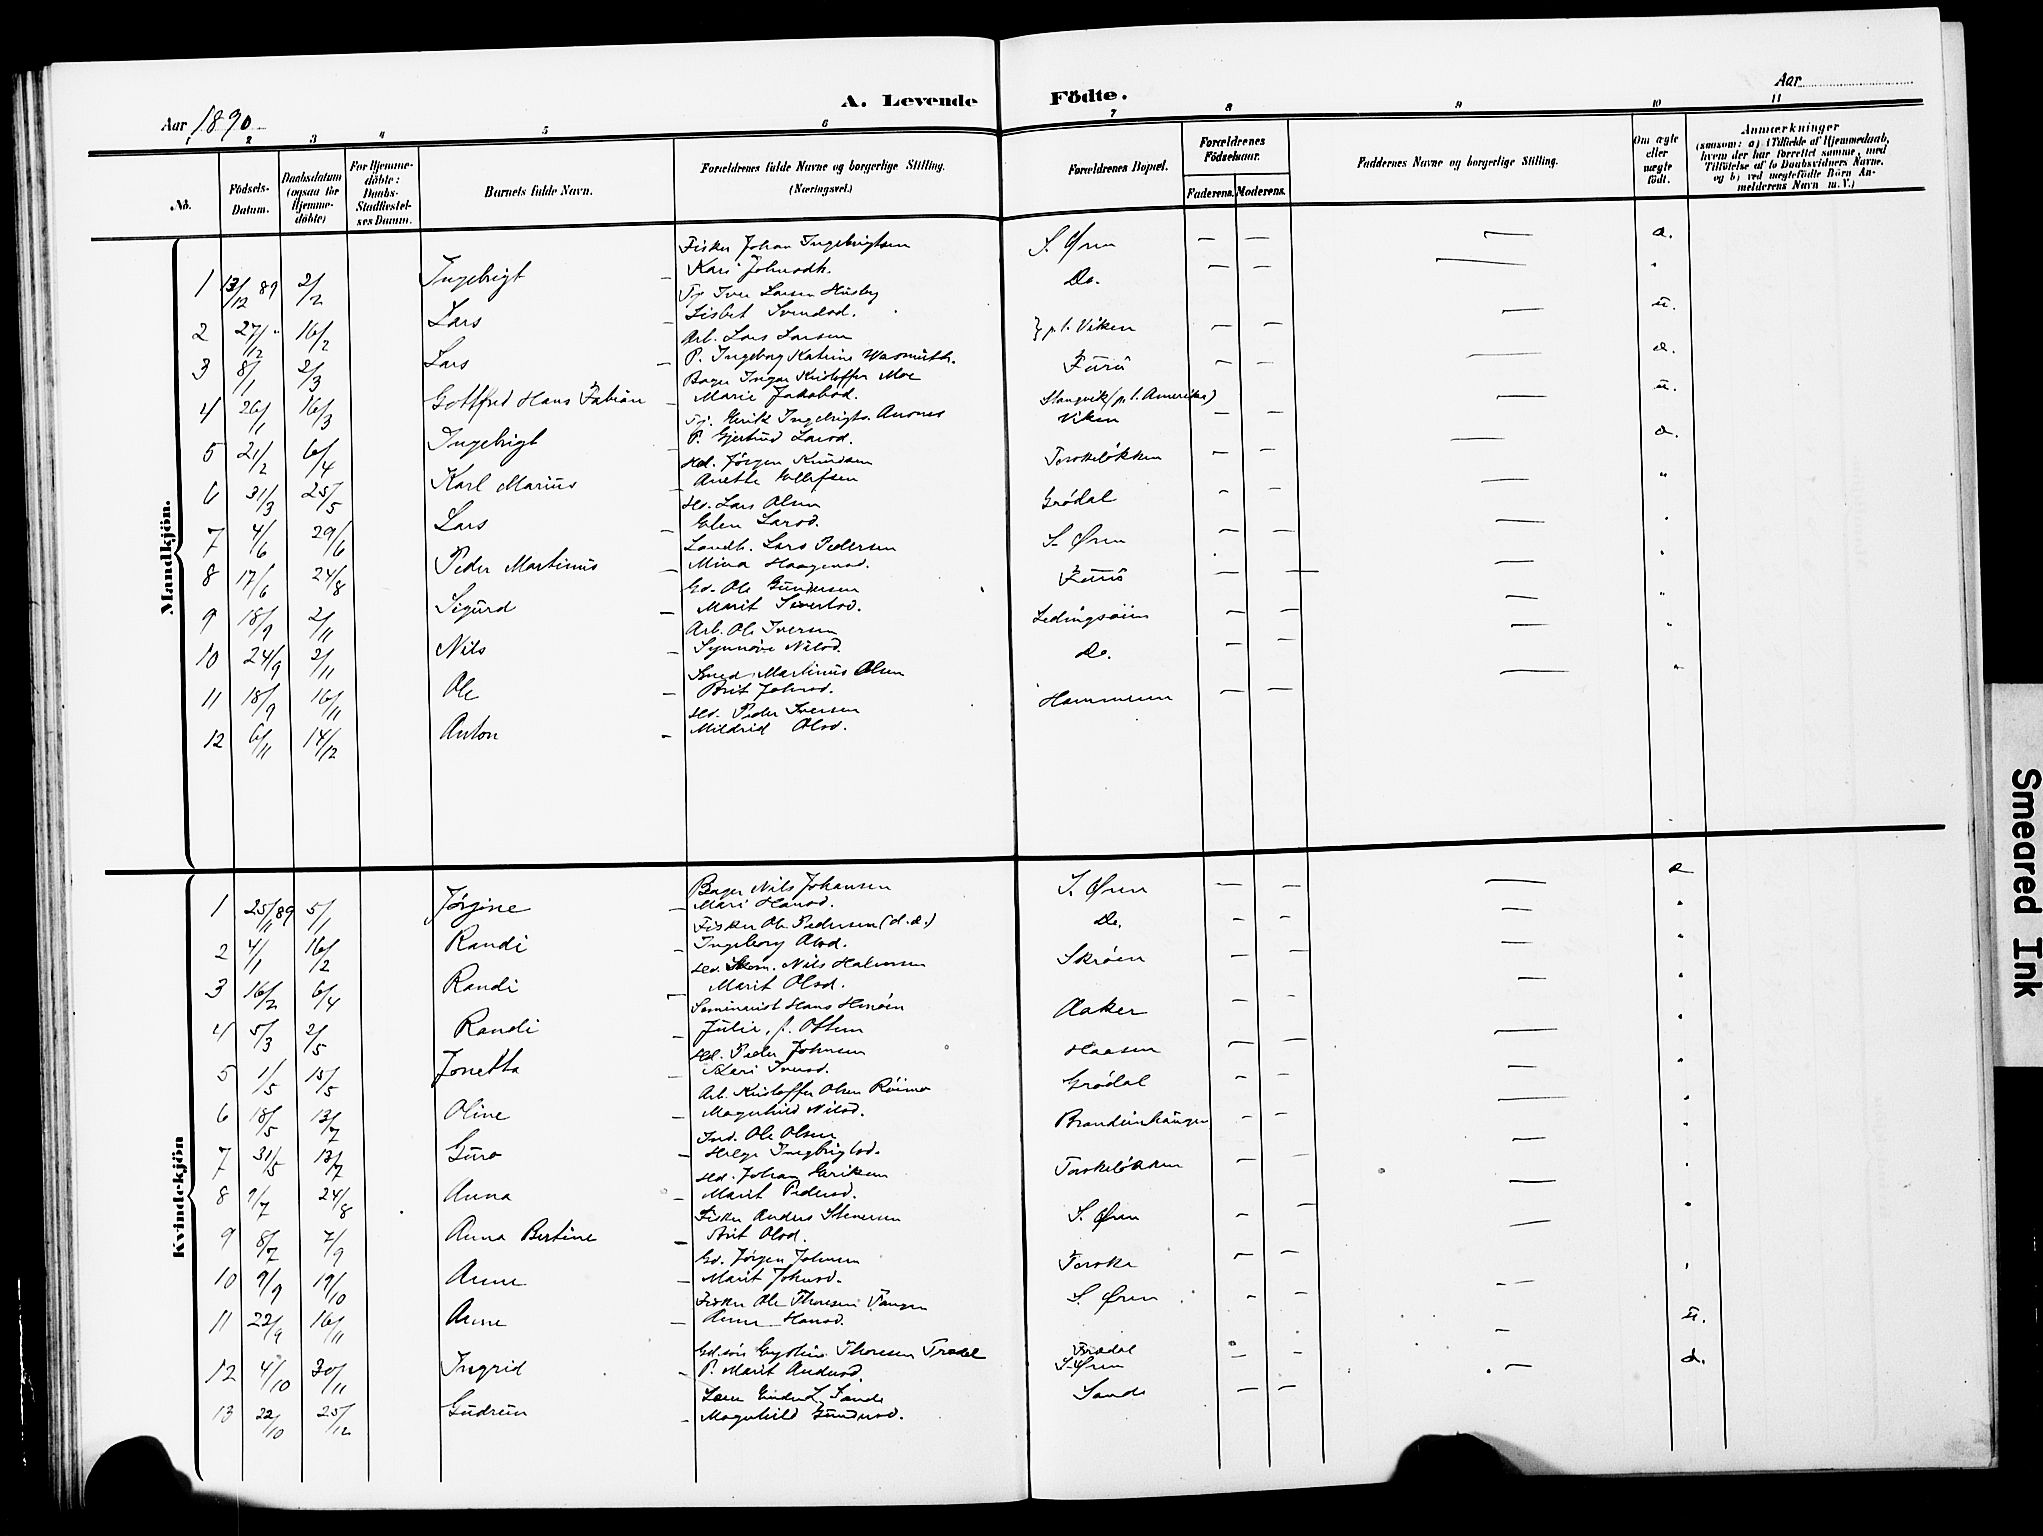 A. Levende Födte.
Aar 1890
Aar
1 2 3 4 5 6 7 8 9 10 11
No. Födsels-Datum. Daabsdatum (ogsaa for Hjemmedöbte) For Hjemmedöbte: Daabs-Stadfæstelses Datum. Barnets fulde Navn. Forældrenes fulde Navne og borgerlige Stilling. (Næringsvei.) Forældrenes Bopæl. Forældrenes Födselsaar. Faderens. Moderens. Faddernes Navne og borgerlige Stilling. Om ægte eller uægte födt. Anmærkninger (saasom: a) i Tilfælde af Hjemmedaab, hvem der har forrettet samme, med Tilföielse af to Daabsvidners Navne, og b) ved uægtefödte Börn Anmelderens Navn m. V.)
Mandkjön.
Fisker Johan Ingebrigtsen S. Øren — — — a.
1 13/12 89 2/2 Ingebrigt – Kari Johnsdt. Do. — — — "
Tj. Iver Larsen Husby
2 27/12 " 16/2 Lars – Lisbet Svendsd. } p.t. Viken — — — u.
Arb. Lars Larsen
3 8/1 2/3 Lars – P. Ingeborg Katrine Wasmuth. Furu — — — a.
Bager Ingar Kristoffer Moe
4 26/1 16/3 Gottfred Hans Fabian – Marie Jakobsd. Stangvik (p.t. Amerika) — — — u.
Tj. Henrik Ingebrigts. Viken
5 21/2 6/4 Ingebrigt – P. Gjertrud Larsd.
Hd. Jørgen Knudsen Torskeløkken — — — a.
6 31/3 25/5 Karl Marius – Anette Ellefsen
Hd. Lars Olsen Grødal — — — "
7 4/6 29/6 Lars – Elen Larsd.
Landh. Lars Pedersen S. Øren — — — "
8 17/6 24/8 Peder Martinus – Mina Haagensd.
Gd. Ole Gundersen Furu — — — "
9 18/9 2/11 Sigurd – Marit Sivertsd.
Arb. Ole Iversen Ledingsøien — — — "
10 24/9 2/11 Nils – Synnøve Nilsd.
Smed Martinus Olsen Do. — — — "
11 18/9 16/11 Ole – Brit Johnsd.
Hd. Peder Iversen Hammeren — — — "
12 6/11 14/12 Anton – Mildrid Olsd.
Kvindekjön
Bager Nils Johansen S. Øren — — — a
1 25/11 89 5/1 Jørgine – Mari Hansd.
Fisker Ole Pedersen (d.d.) Do. — — — "
2 4/1 16/2 Randi – Ingeborg Olsd.
Hd. Skom. Nils Halvorsen Skrøen — — — "
3 16/2 6/4 Randi – Marit Olsd.
Seminarist Hans Aaker — — — "
4 5/3 2/5 Randi – Julie, f. Ottem
Hd. Peder Johnsen Haasen — — — "
5 1/5 15/5 Jonetta – Kari Iversd.
Arb. Kristoffer Olsen Røimo Grødal — — — "
6 18/5 13/7 Oline – Magnhild Nilsd.
Ind. Ole Olsen — — — "
7 31/5 13/7 Guro – Helge Ingebrigtsd.
Hd. Johan Henriksen Torskeløkken — — — "
8 9/7 24/8 Anna – Marit Pedersd.
Fisker Anders Stenersen S. Øren — — — "
9 8/7 7/9 Anna Bertine – Brit Olsd.
Gd. Jørgen Johnsen Torske — — — "
10 9/9 19/10 Anne – Marit Johnsd.
Fisker Ole Thoresen Vangen S. Øren — — — "
11 22/9 16/11 Anne – Anne Hansd. u.
Gd.søn Thoresen Trædal Trædal — — —
12 4/10 30/11 Ingrid – P. Marit Andersd. S. Øren a.
Sande — — —
13 22/10 25/12 Gudrun – Magnhild Gundersd.
Smeared Ink